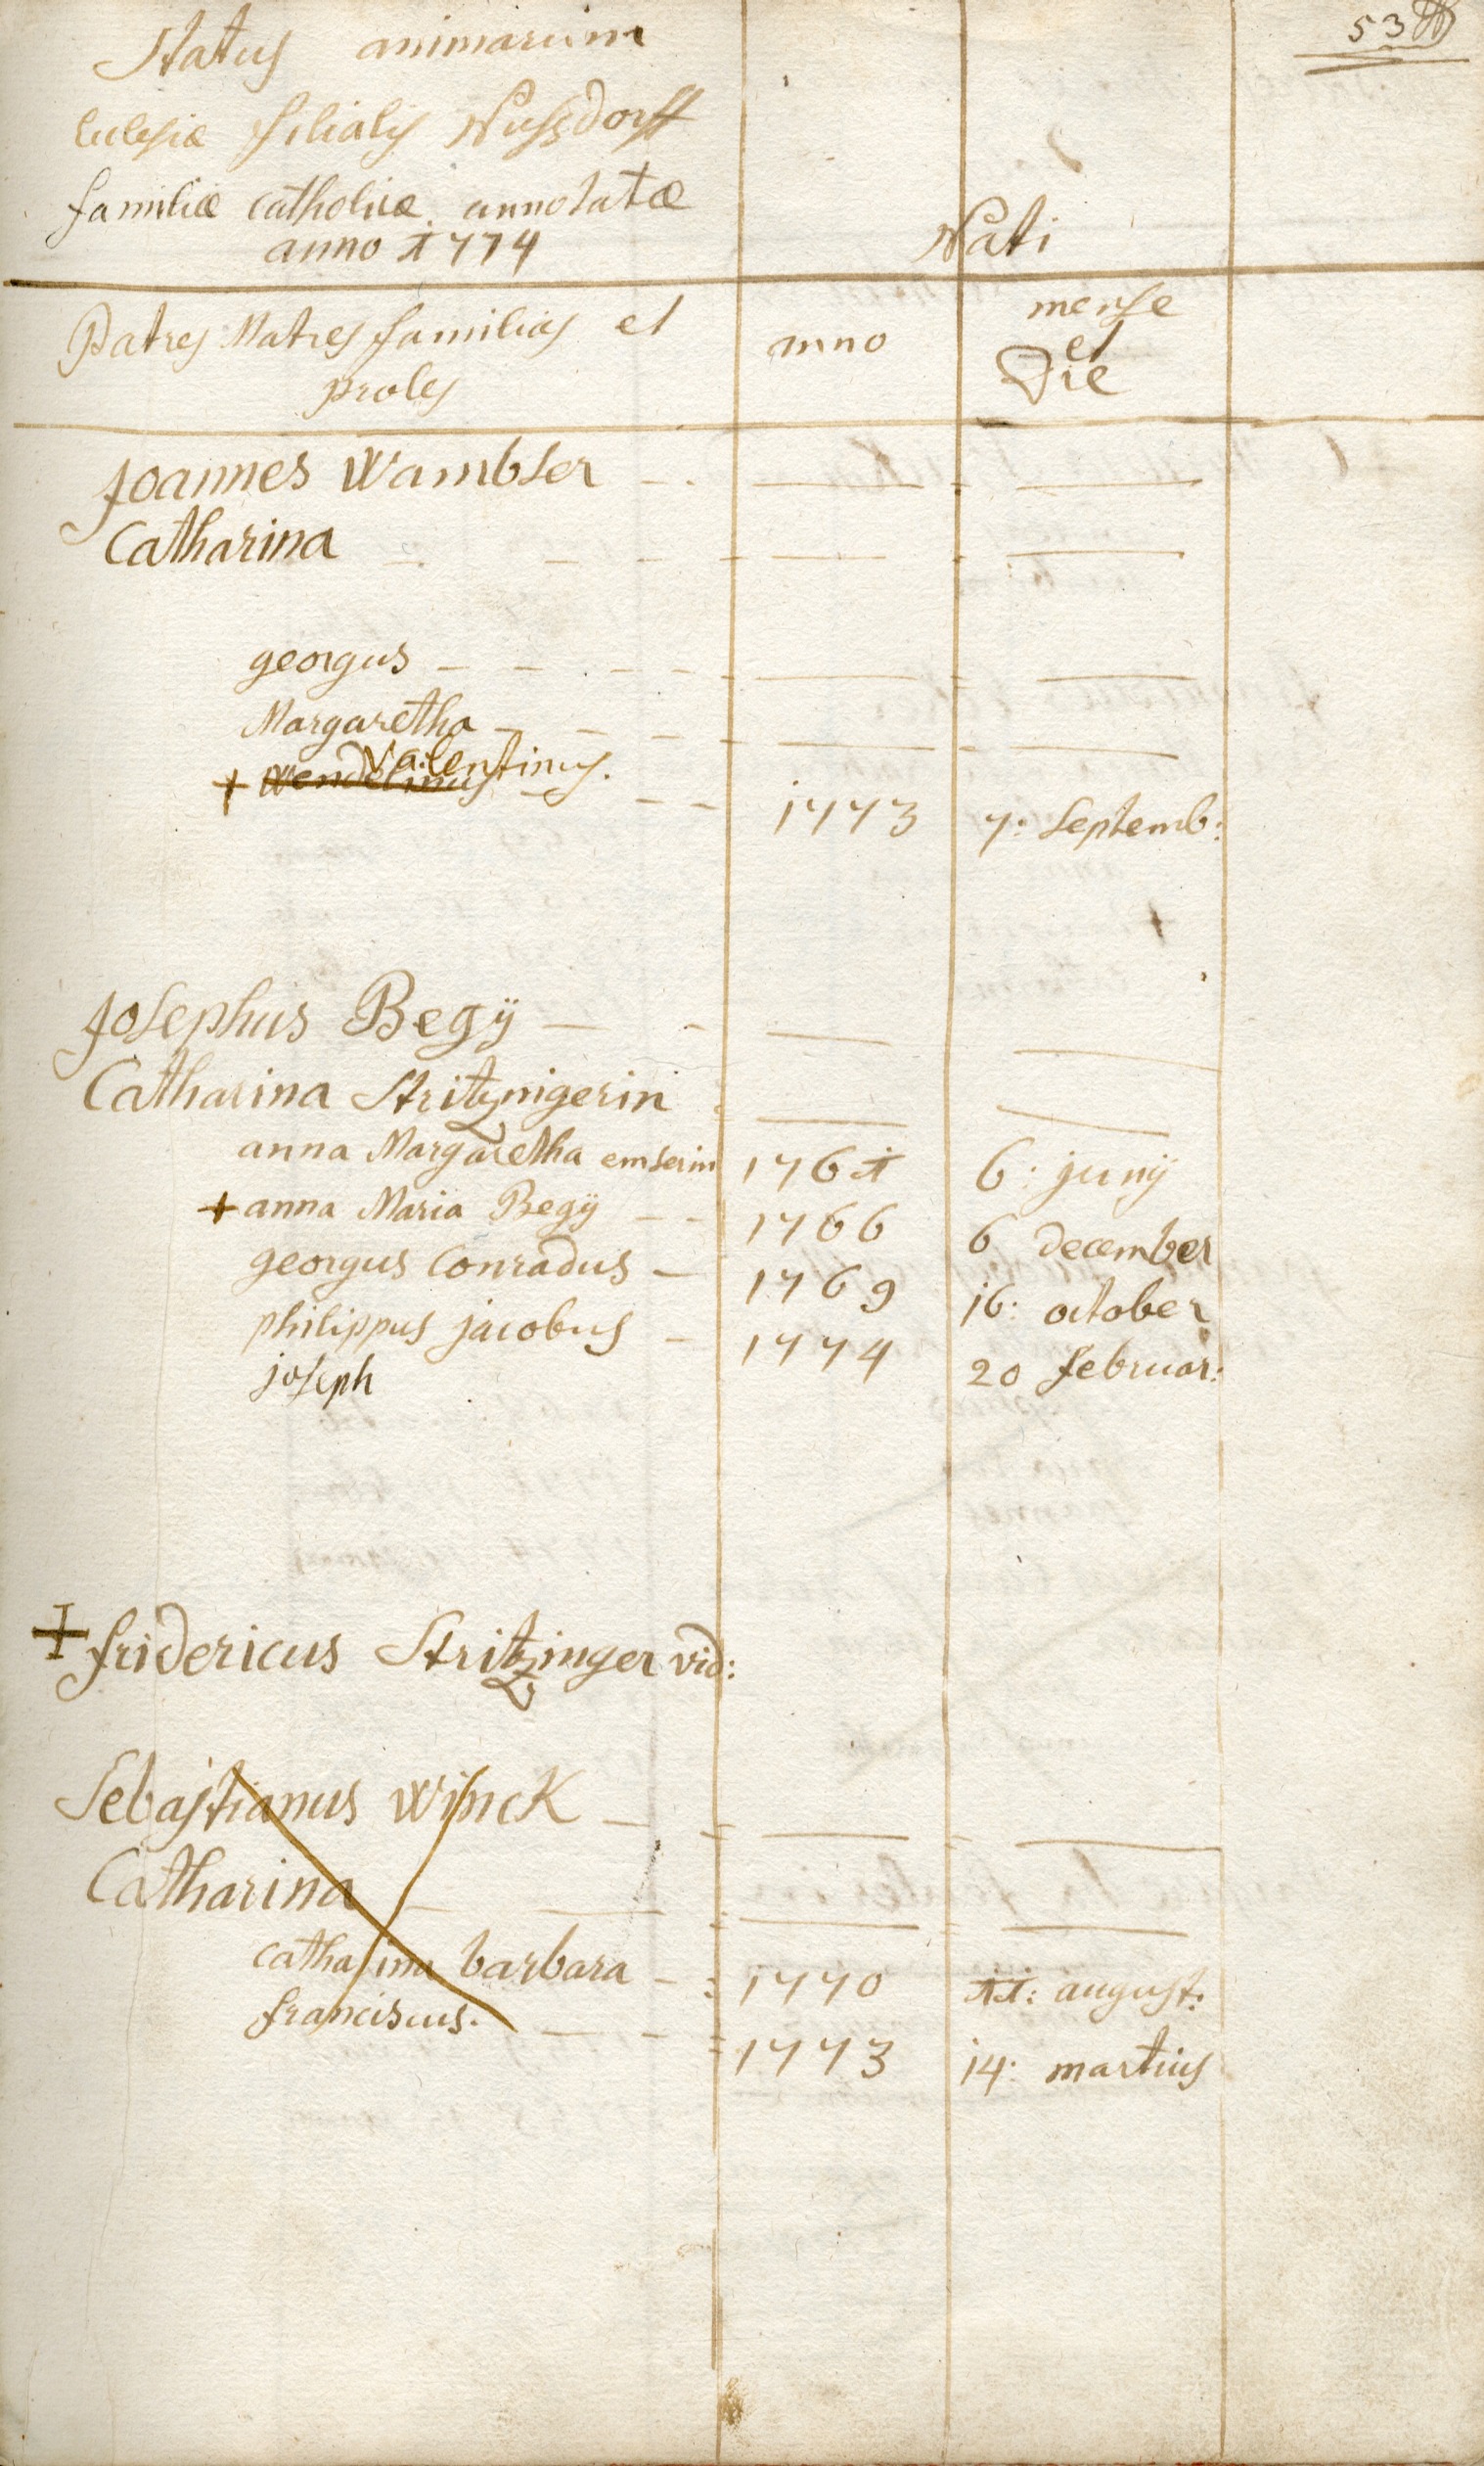 53
Status animarum
Eclesiæ filialis Nussdorff
familiæ catholicæ annotatæ
anno 1774
Nati
Patres Matres familias et
proles
anno
mense
et
Die
Joannes Wambser
Catharina
georgus
Margaretha
valentinus.
+ wendelinus 1773 7: Septemb:
Josephus Begÿ
Catharina Stritznigerin
anna Margaretha emserin 1761 6: junÿ
+ anna Maria Begÿ 1766 6 december
georgus Conradus 1769 16: october
philippus jacobus 1774 20 februar:
joseph
+ fridericus Stritzinger vid:
Sebastianus Winck
Catharina
catharina barbara 1770 11: august:
franciscus. 1773 14: martius